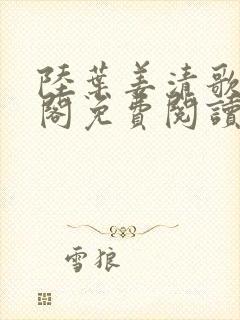 陸葉姜清歌
閣免費閱讀
雪狼